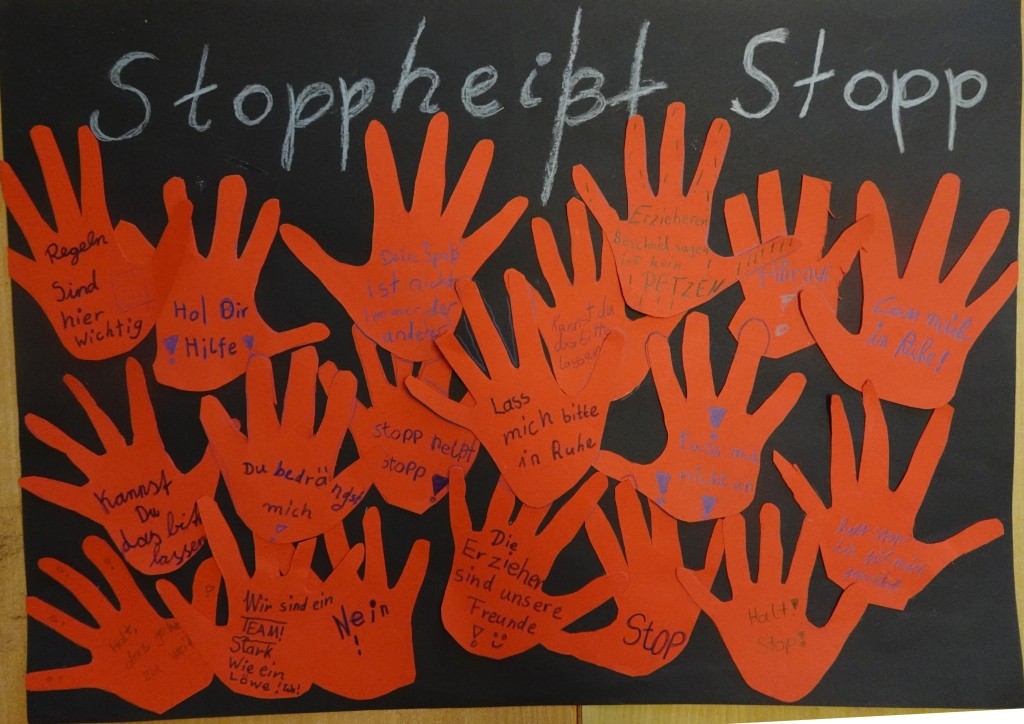 Stopp heißt Stopp
Regeln
Sind
hier
wichtig
Hol Dir
! Hilfe !
Dein Spaß
ist nicht
immer der
anderer
Erzieheren
Bescheid sagen
ist kein
PETZEN
Kannst du
das bitte
lassen
Lass mich
in Ruhe!
Kannst
Du
das bitte
lassen
Du bedrängst
mich
!
stopp heißt
stopp !
Lass
mich bitte
in Ruhe
!
Fass mich
nicht an
! !
Halt,
das
zu weit
Wir sind ein
TEAM!
Stark
Wie ein
Löwe!
Nein
!
Die
Erzieher
sind unsere
Freunde
!
Stop
Halt!
Stop!